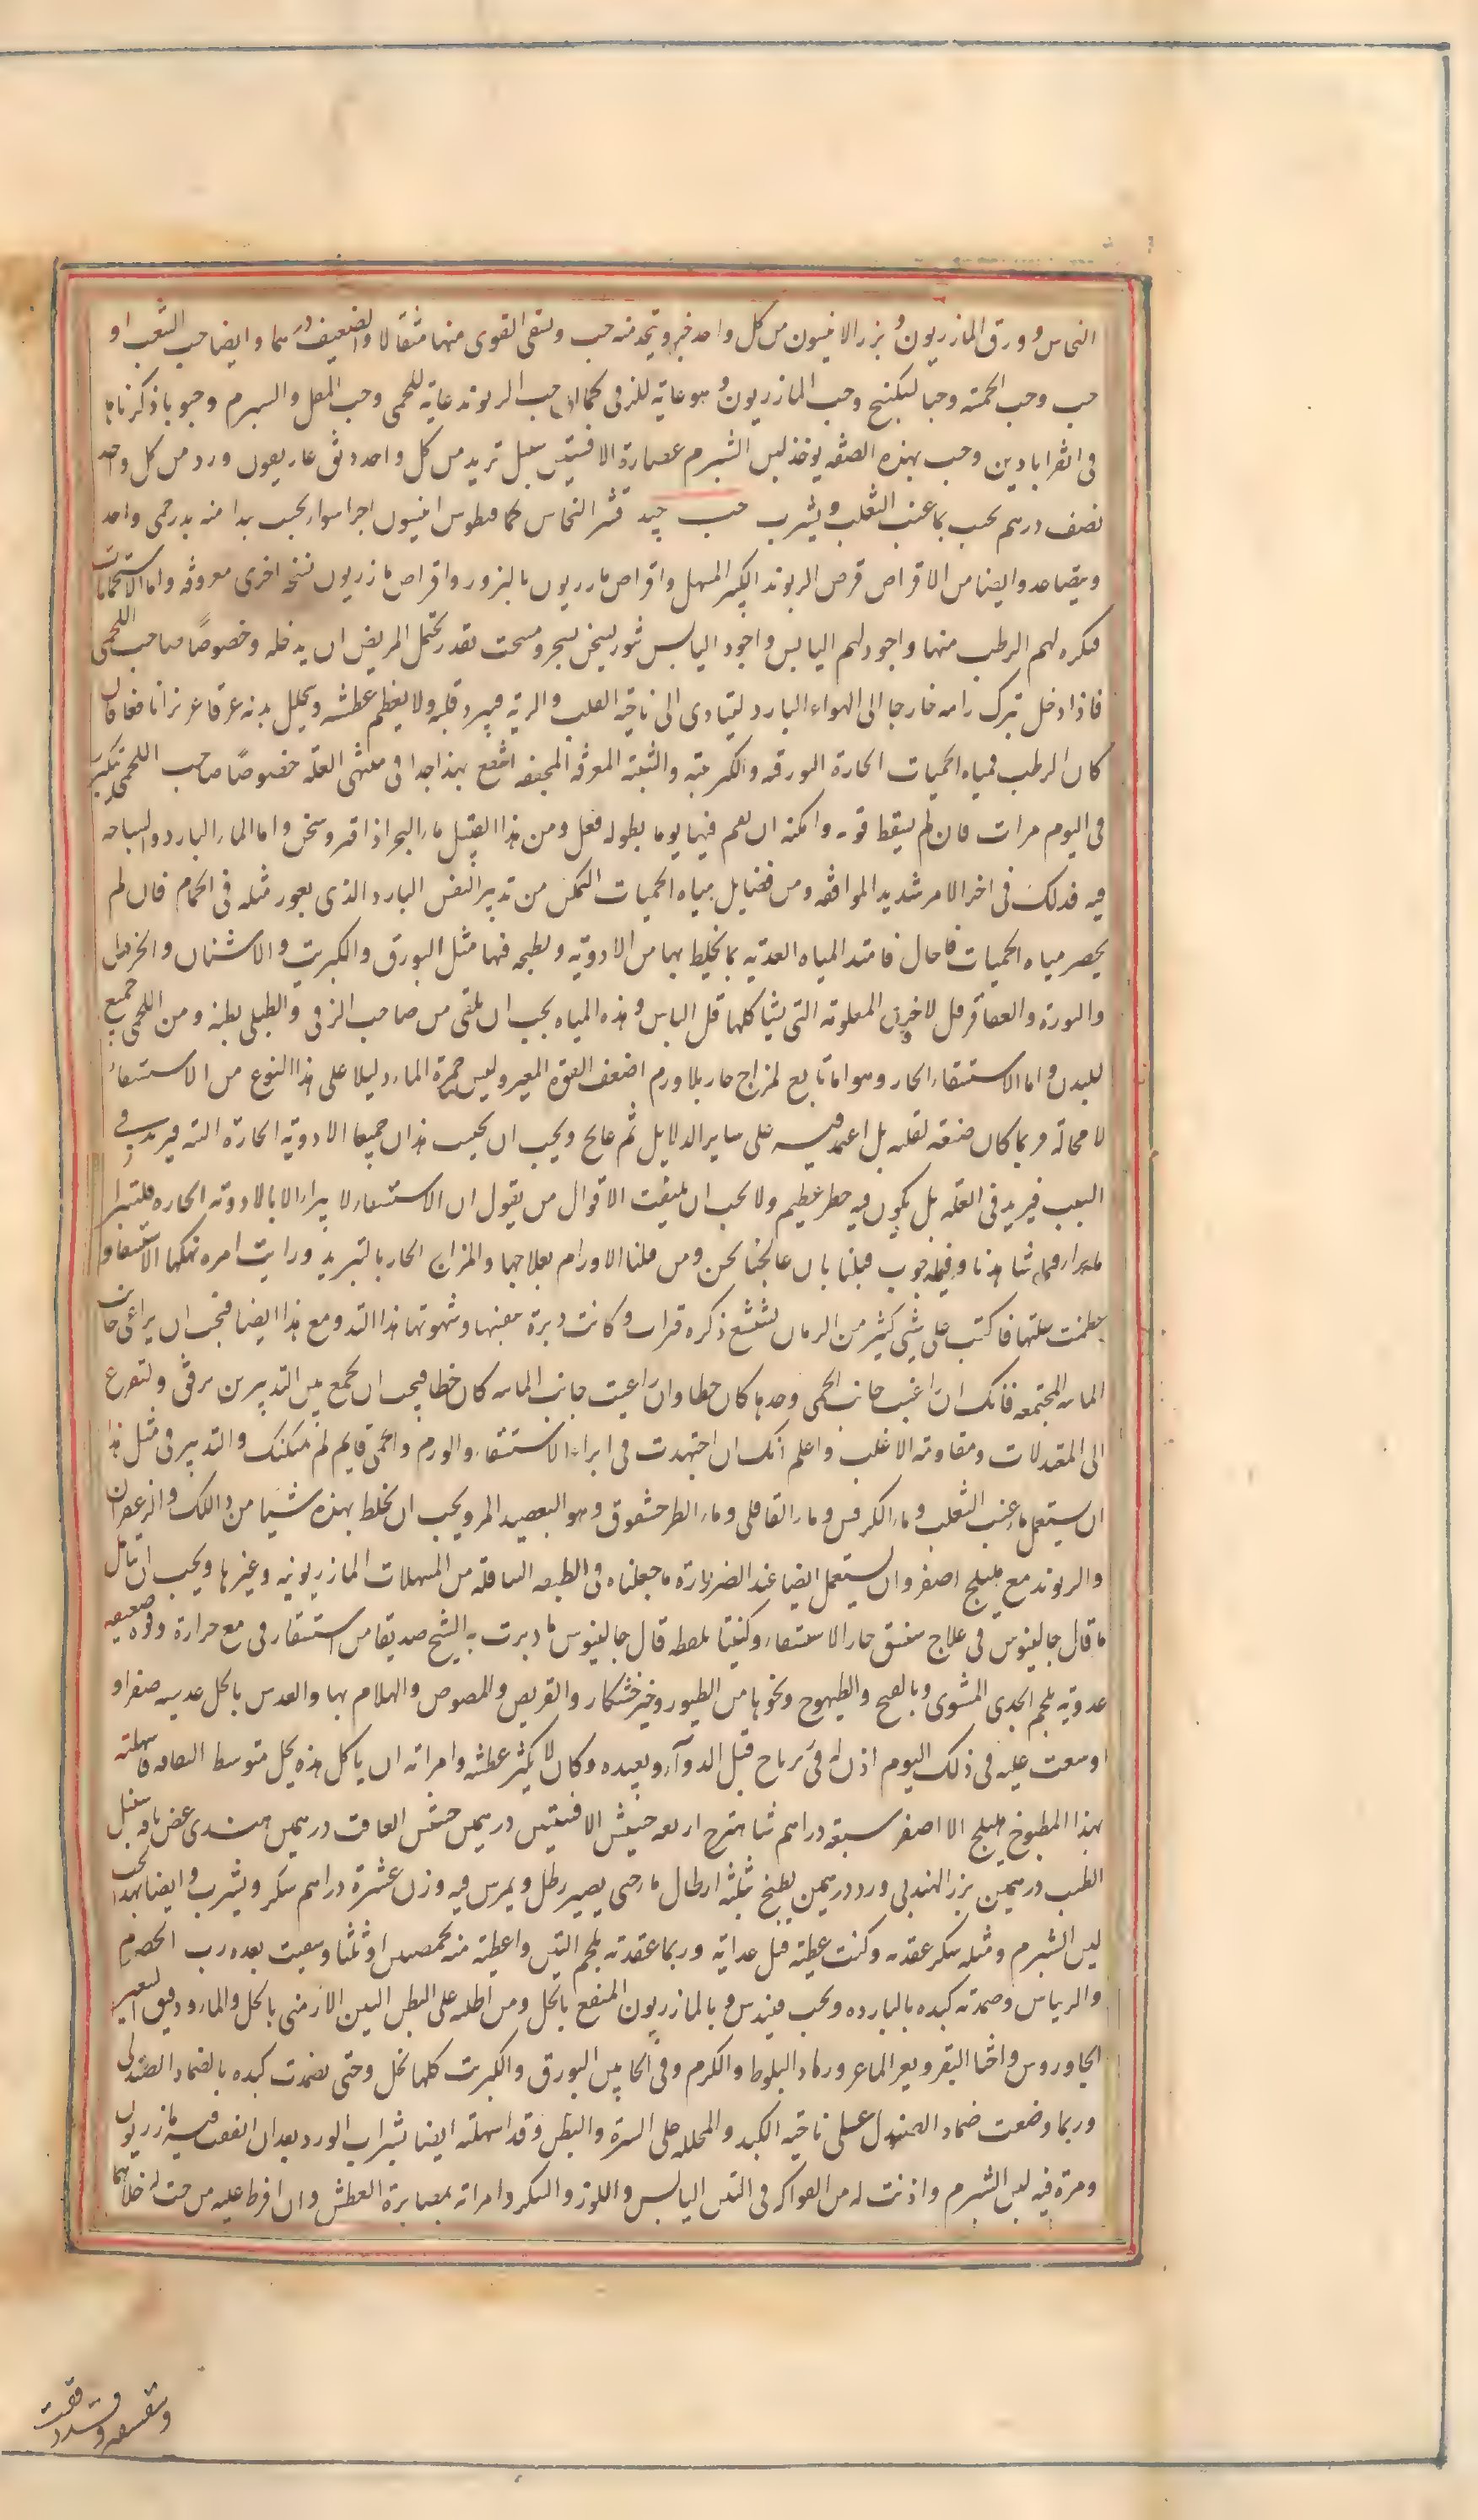 النحاس و ورق المازريون و بزر الانيسون من كل واحد جزو يتخذ منه حب و يسقى القوى منها مثقالا والضعيف درهما و ايضا حب الشعب او
حب وحب الخمسة وحب السكبينج وحب المازريون و هو غاية للزقى كما ان حب الريوند غاية للحمى وحب المقل والشبرم وحبوبا ذكرناها
فى القراباذين وحب بهذه الصفه يوخذ لبن الشبرم عصارة الافسنتين سنبل تربد من كل واحد دانق غاريقون ورد من كل واحد
نصف درهم يحبب بماء عنب الثعلب و يشرب حب جيد قشر النحاس كمافيطوس انيسون اجزا سوا يحبب يبدا منه بدرخمى واحد
ويتصاعد وايضا من الاقراص قرص الريوند الكبير المسهل واقراص مازريون بالبزور واقراص مازريون نسخه اخرى معروفه واما الاستحمامات
فيكره لهم الرطب منها واجود لهم اليابس واجود اليابس تنور يسخن بسجر و مسحت بقدر يحتمل المريض ان يدخله وخصوصًا صاحب اللحمى
فاذا دخل ترك راسه خارجا الى الهواء البارد ليتادى الى ناحية القلب والرية فيبرد قلبه ولا يعظم عطشه ويتحلل بدنه عرقا غزيرا نافعا فان
كان الرطب فمياه الحميات الحارة البورقيه والكبريتيه والشبيه المعرقه المجففه انفع بهذا جدا فى منتهى العله خصوصًا صاحب اللحمى يكرر
فى اليوم مرات فان لم يسقط قوته وامكنه ان يقيم فيها يوما بطوله فعل ومن هذا القبيل ماء البحر اذا فتر وسخن واما الماء البارد والسباحه
فيه فذلك فى اخر الامر شديد الموافقه ومن فضايل مياه الحميات التمكن من تدبير النفس البارد الذى يعوز مثله فى الحمام فان لم
يحضر مياه الحميات فاحال فامتد المياه العذبه بما يخلط بها من الادويه و يطبخ فيها مثل البورق والكبريت والاشنان والخردل
والنورة والعقاقر الاخرى المعلومه التى يشاكلها قبل الباس و هذه المياه يجب ان يلقى من صاحب الزقى والطبلى بطنه ومن اللحمى جميع
البدن و اما الاستسقاء الحار وهو اما تابع لمزاج حار بلا ورم اضعف القوة المغيره وليس حمرة الماء دليلا على هذا النوع من الاستسقاء
لا محالة فربما كان صنعه لقلته بل اعتمد فيه على ساير الدلايل ثم عالج ويجب ان يجتنب هذان جميعا الادوية الحارة التى فيزيد فى
السبب فيزيد فى العله بل يكون فيه خطر عظيم ولا يجب ان يلتفت الاقوال من يقول ان الاستسقاء لا يبرا الا بالادويه الحاره فكثيرا
مابرا فيما شاهدنا وفيما جرب قبلنا بان عالجنا نحن ومن قبلنا الاورام بعلاجها والمزاج الحار بالتبريد ورايت امره نهكها الاستسقاء و
عظمت علتها فاكبت على شى كثير من الرمان يستشنع ذكره فبرات وكانت دبرة بنفسها وشهوتها هذا التدبير ومع هذا ايضا فيجب ان يراعى جانب
الماء المجتمعه فانك ان راعيت جانب الحمى وحدها كان خطا وان راعيت جانب الماء كان خطا فيجب ان يجمع بين التدبيرين برفق ولتفرع
الى المعتدلات ومقاومه الاغلب واعلم انك ان اجتهدت فى ابراء الاستسقاء والورم والحمى قايم لم يمكنك والتدبير فى مثل هذا
ان يستعمل ماء عنب الثعلب وماء الكرفس وماء القاقلى وماء الطرحشقوق وهو اليعضيد المر ويجب ان يخلط بهذه شيا من اللك والزعفران
والريوند مع هليلج اصفر وان يستعمل ايضا عند الضرورة ما جعلناه فى الطبقه السافله من المسهلات المازريونيه وغيرها ويجب ان يتامل
ما قال جالينوس فى علاج من به حار الاستسقاء وكيفيتا بلفظه قال جالينوس ما دبرت به الشيخ صديقا من استسقاء زقى مع حرارة وقوة ضعيفه
غدوته بلحم الجدى المشوى وبالقبج والطيهوج ونحوها من الطيور وخبز خشكار والقريص والمصوص والهلام بها والعدس بالخل عدسيه صفرا و
اوسعت عليه فى ذلك اليوم اذن له فى مرقه قبل الدوآء وبعده وكان لا يكثر عطشه وامراته ان ياكل هذه بخل متوسط الثقافه و اسهلته
بهذا المطبوخ هليلج الا اصفر سبعه دراهم شاهترج اربعه حشيش الافسنتين درهمين حشيش الغافت درهمين هندى غض باقه سنبل
الطيب درهمين بزر الهندبا ورد درهمين يطبخ بثلثه ارطال ماء حتى يصير رطل ويمرس فيه وزن عشرة دراهم سكر ويشرب و ايضا بهذا الحب
لبن الشبرم ومثله سكر عقدته وكنت اعطيته قبل غدائه وربما عقدته بلحم التين واعطيته منه حمصتين او ثلثا وسقيت بعده رب الحصرم
والريباس وضمدته كبده بالبارده ويجب قيندس و بالمازريون المنقع بالخل ومن اطليه على البطن الطين الارمنى بالخل والماء ودقيق الشعير
الجاوروس واخثا البقر وبعر الماعز ورماد البلوط والكرم وفى الحابين البورق والكبريت كلها بخل وحتى يضمدت كبده بالضماد الصندلى
وربما وضعت ضماد الصندل على ناحيه الكبد والمحلله على السرة والبطن وقد اسهلته ايضا بشراب الورد بعد ان انقعت فيه مازريون
ومرة فيه لبن الشبرم واذنت له من الفواكه فى التين اليابس واللوز والسكر وامراته بمصابرة العطش وان افرط عليه مزجت له خلا بما